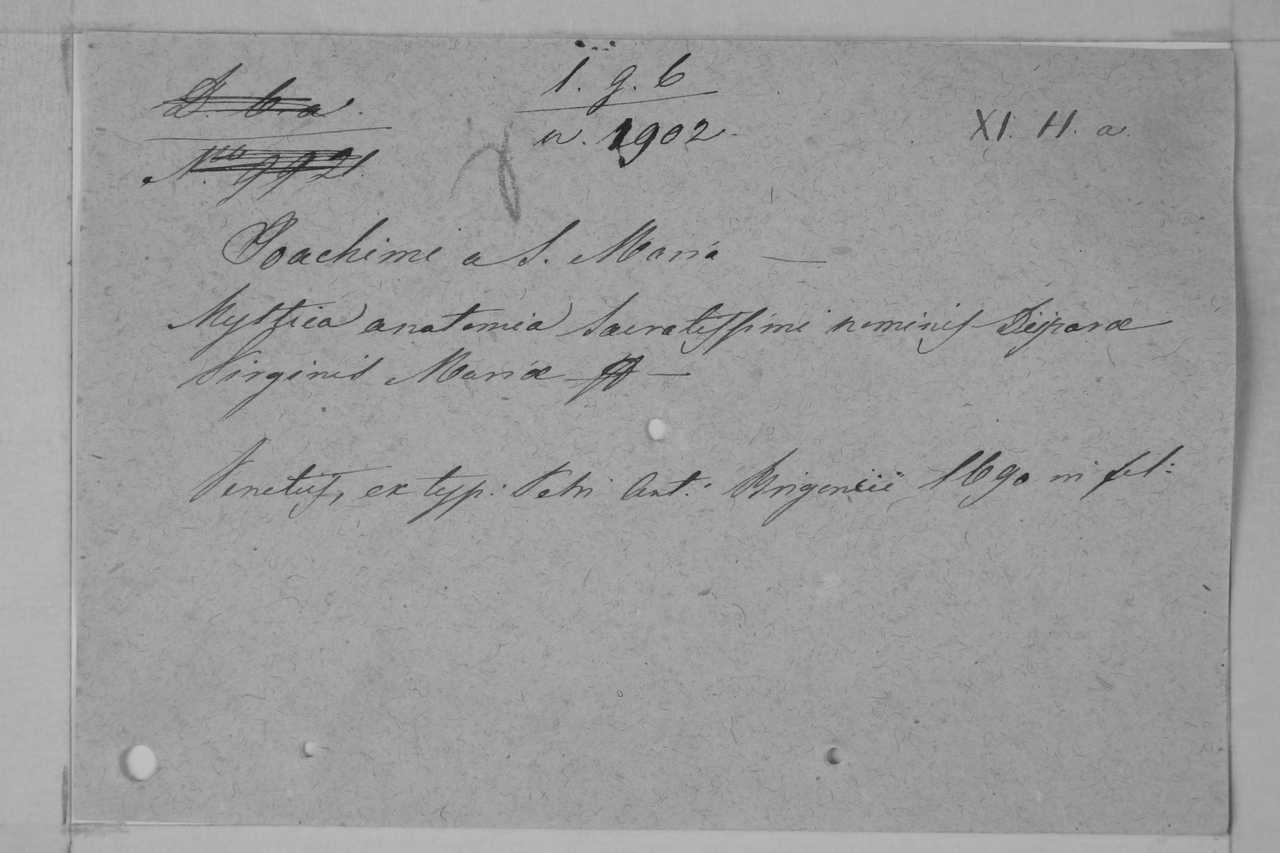 D. b a.
Nro 9921.
I. g. b
n. 1902.
XI. H. a.
Joachimi a S. Maria —
Mystica anatomia Sacratissimi nominis Deiparæ
Virginis Mariæ —
Venetiis, ex typ: Petri Ant: Brigoncii 1690 in fol: